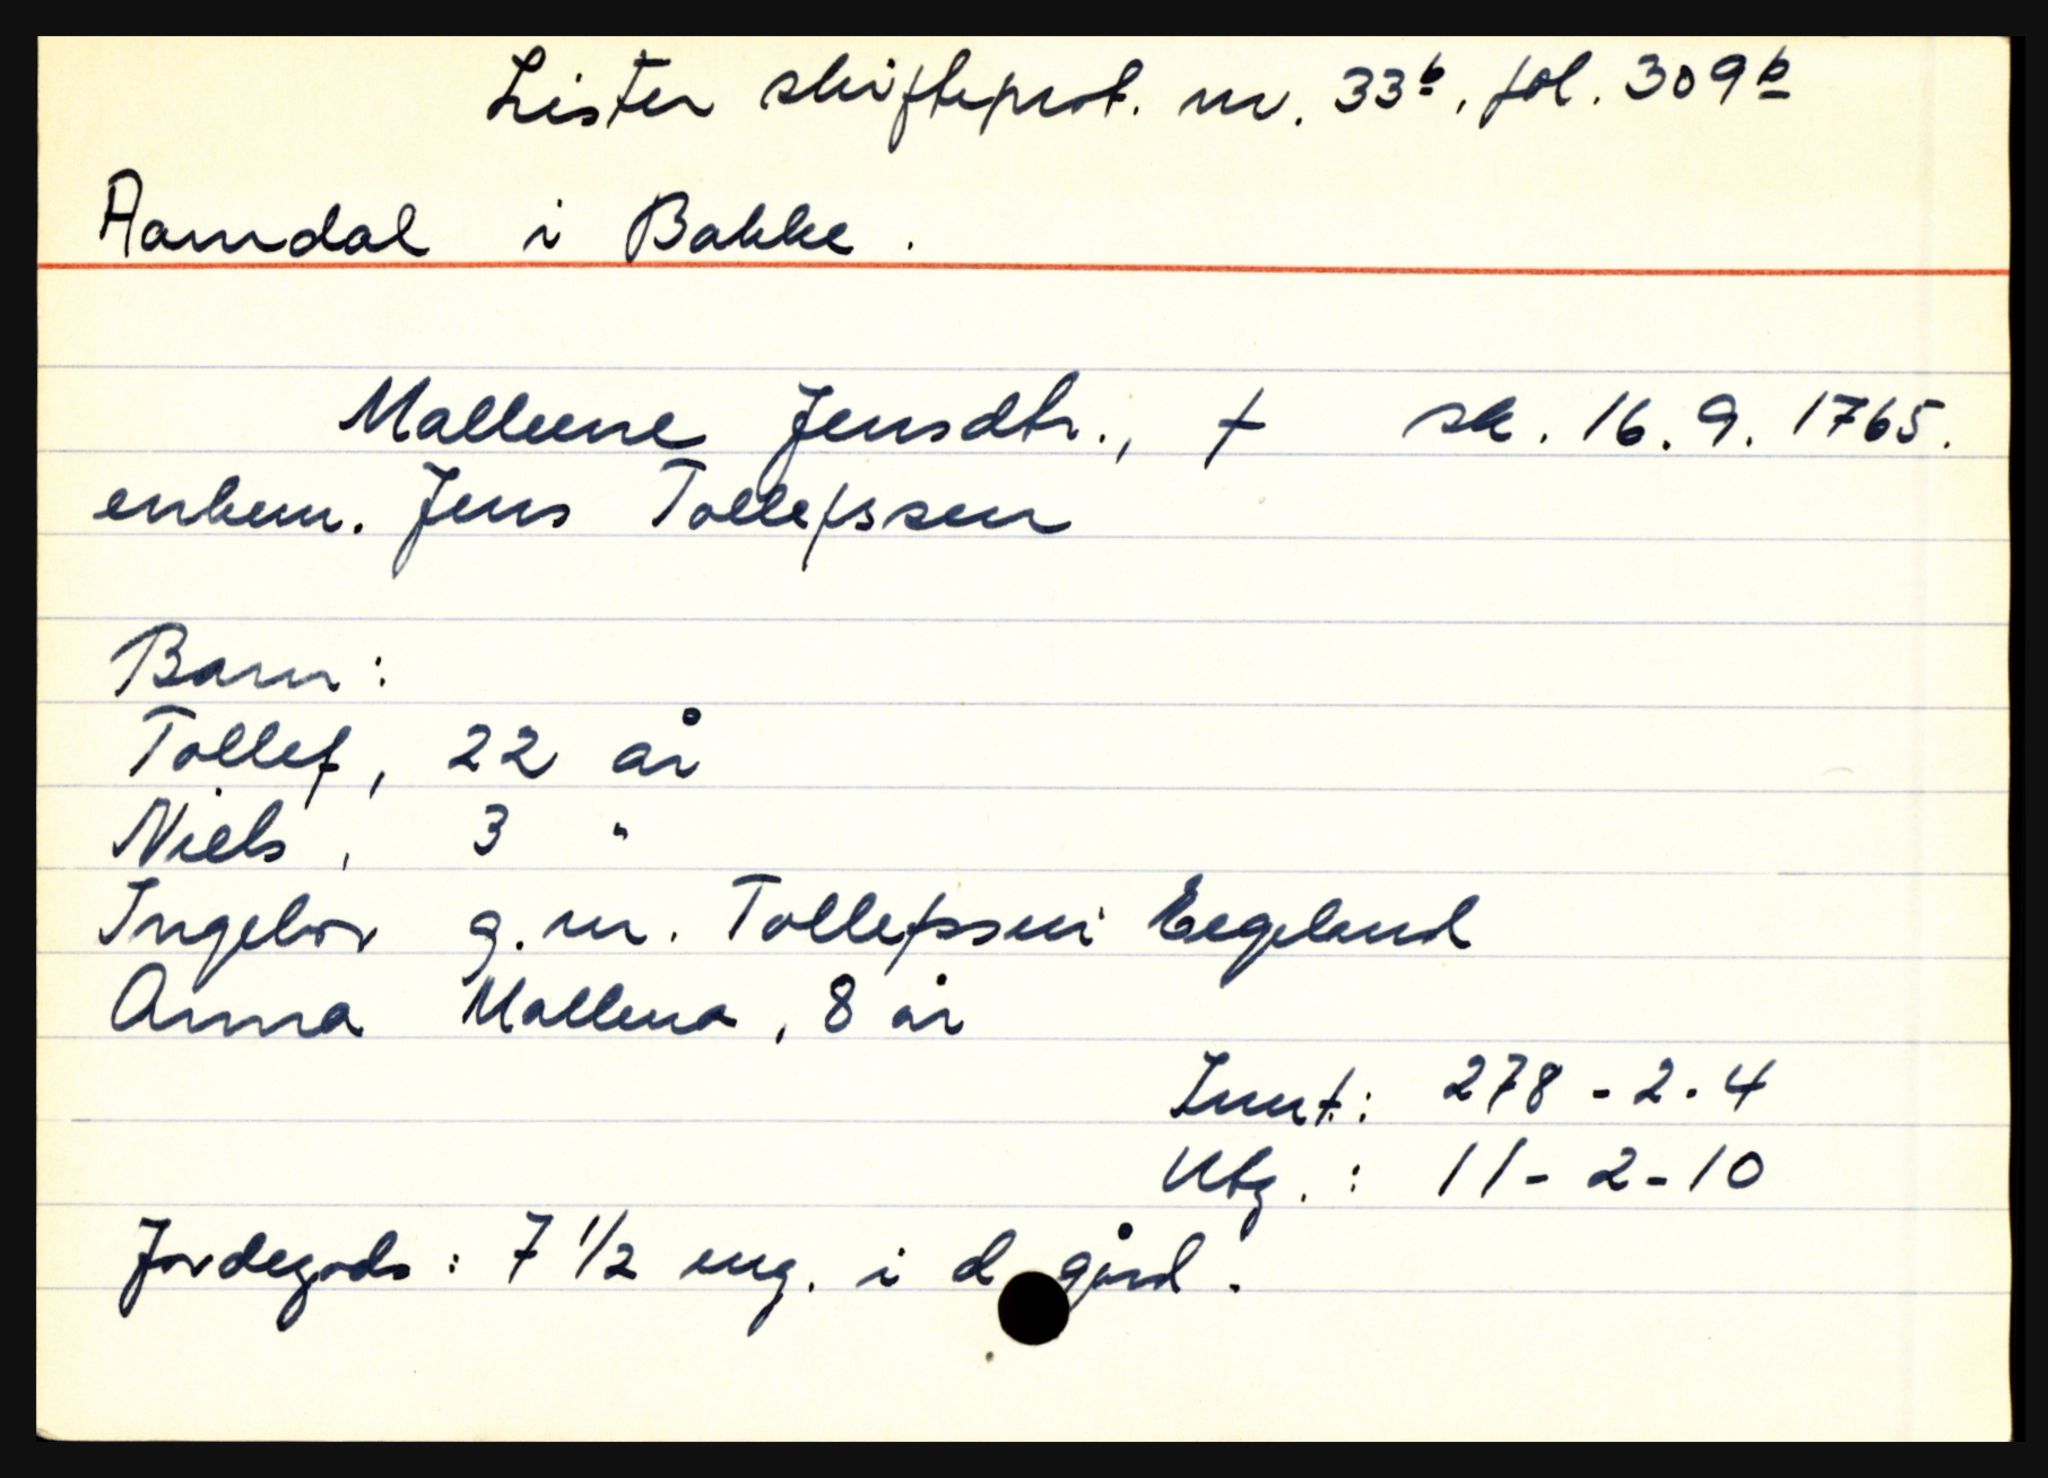 Lister skifteprot. nr. 33b, fol. 309b
Aamdal i Bakke.
Malleene Jensdtr., † sk. 16.9.1765.
enkem. Jens Tollefssen
Barn:
Tollef, 22 år
Niels, 3 "
Ingebor g.m. Tollefssen i Eegeland
Anna Mallena, 8 år
Innt.: 278-2-4
Utg.: 11-2-10
Jordegods: 7 1/2 eng. i d gård.